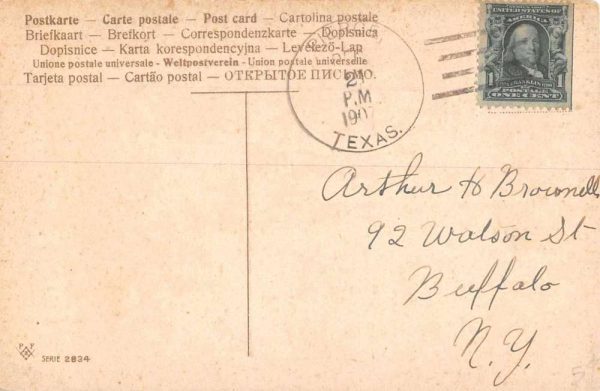 Postkarte — Carte postale — Post card — Cartolina postale
Briefkaart — Brefkort — Correspondenzkarte — Dopisnica
Dopisnice — Karta korespondencyjna — Levelező-Lap
Unione postale universale - Weltpostverein - Union postale universelle
Tarjeta postal — Cartão postal — ОТКРЫТОЕ ПИСЬМО.
21
P.M
1907
TEXAS.
UNITED STATES OF
AMERICA
1 1
POSTAGE
ONE CENT
Arthur H Brownell
92 Watson St
Buffalo
N.Y.
P P
SERIE 2834